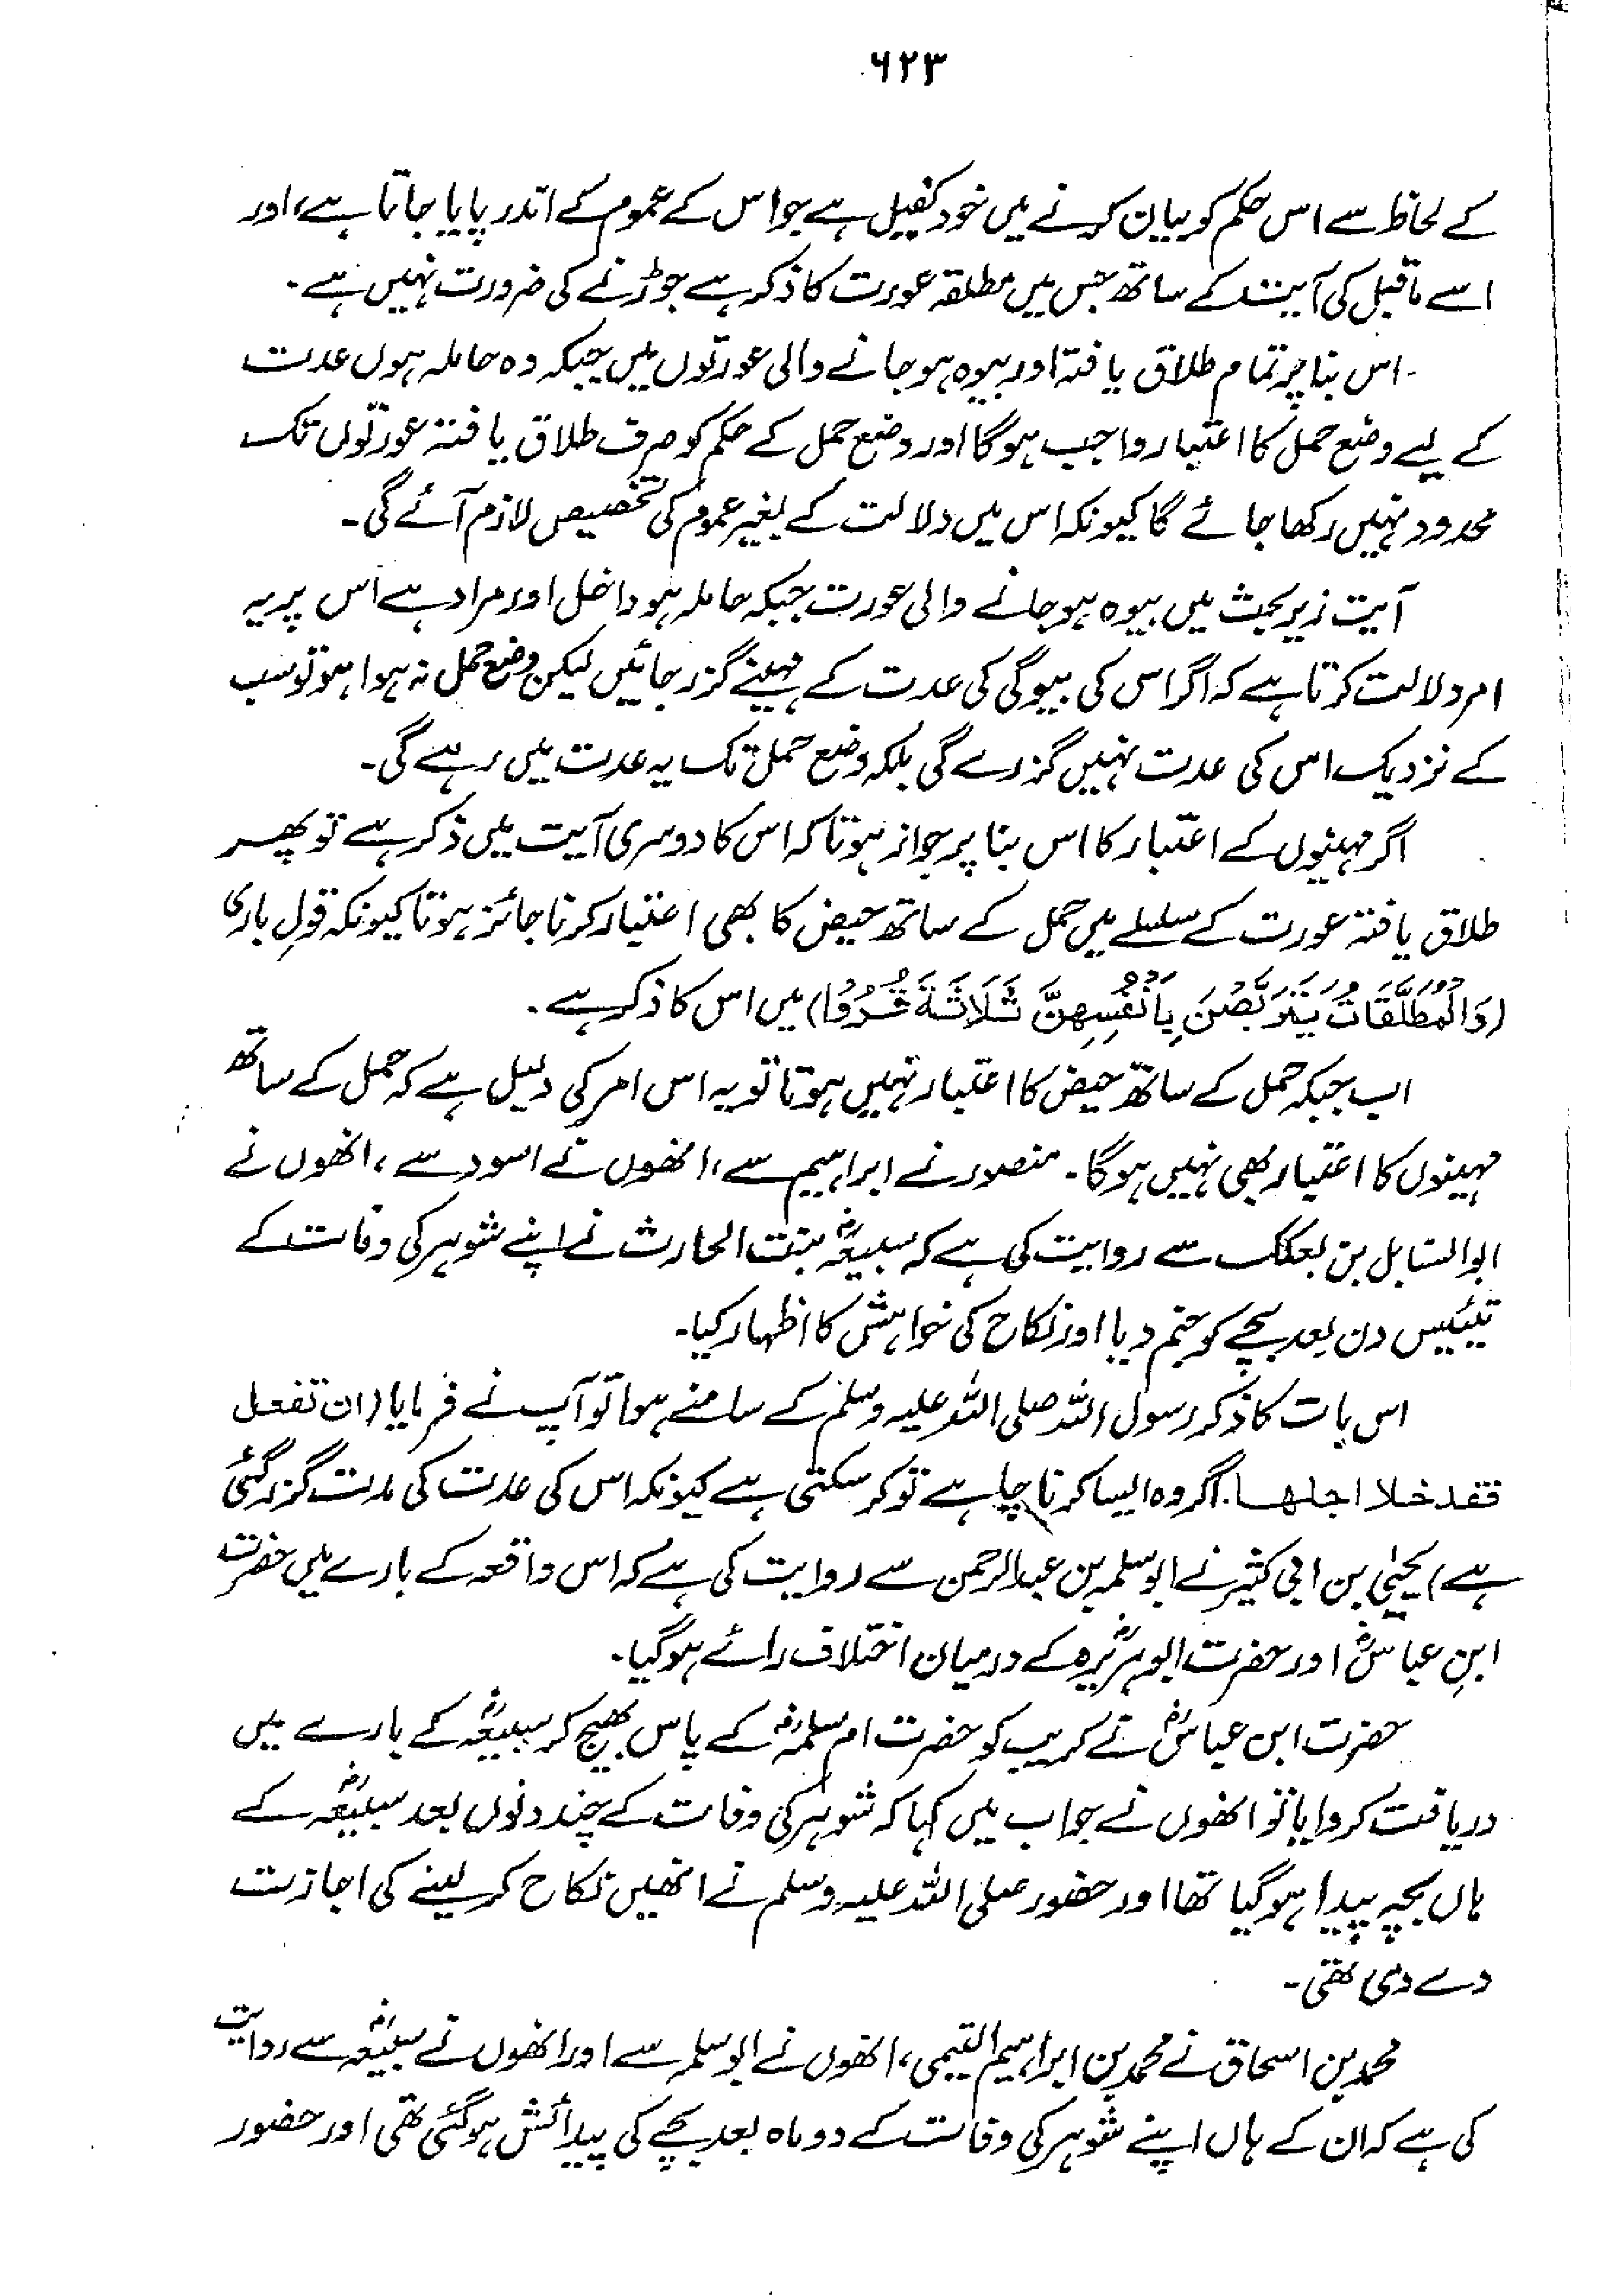 ۶۲۳
کے لحاظ سے اس حکم کو بیان کرنے میں خود کفیل ہے جو اس کے عموم کے اندر پایا جاتا ہے، اور
اسے ماقبل کی آیت کے ساتھ جس میں مطلقہ عورت کا ذکر ہے جوڑنے کی ضرورت نہیں ہے۔
اس بنا پر تمام طلاق یافتہ اور بیوہ ہو جانے والی عورتوں میں جبکہ وہ حاملہ ہوں عدت
کے لیے وضع حمل کا اعتبار واجب ہوگا اور وضع حمل کے حکم کو صرف طلاق یافتہ عورتوں تک
محدود نہیں رکھا جائے گا کیونکہ اس میں دلالت کے بغیر عموم کی تخصیص لازم آئے گی۔
آیت زیر بحث میں بیوہ ہو جانے والی عورت جبکہ حاملہ ہو داخل اور مراد ہے اس پر یہ
امر دلالت کرتا ہے کہ اگر اس کی بیوگی کی عدت کے مہینے گزر جائیں لیکن وضع حمل نہ ہوا ہو تو سب
کے نزدیک اس کی عدت نہیں گزرے گی بلکہ وضع حمل تک یہ عدت میں رہے گی۔
اگر مہینوں کے اعتبار کا اس بنا پر جواز ہوتا کہ اس کا دوسری آیت میں ذکر ہے تو پھر
طلاق یافتہ عورت کے سلسلے میں حمل کے ساتھ حیض کا بھی اعتبار کرنا جائز ہوتا کیونکہ قولِ باری
(وَالْمُطَلَّقَاتُ يَتَرَبَّصْنَ بِأَنْفُسِهِنَّ ثَلَاثَةَ قُرُوْا) میں اس کا ذکر ہے۔
اب جبکہ حمل کے ساتھ حیض کا اعتبار نہیں ہوتا تو یہ اس امر کی دلیل ہے کہ حمل کے ساتھ
مہینوں کا اعتبار بھی نہیں ہوگا۔ منصور نے ابراہیم سے، انھوں نے اسود سے، انھوں نے
ابوالسنابل بن بعکک سے روایت کی ہے کہ سبیعہؓ بنت الحارث نے اپنے شوہر کی وفات کے
تیئیس دن بعد بچے کو جنم دیا اور نکاح کی خواہش کا اظہار کیا۔
اس بات کا ذکر رسول اللہ صلی اللہ علیہ وسلم کے سامنے ہوا تو آپ نے فرمایا (ان تفعل
فقد خلا اجلھا۔ اگر وہ ایسا کرنا چاہے تو کر سکتی ہے کیونکہ اس کی عدت کی مدت گزر گئی
ہے) یحییٰ بن ابی کثیر نے ابوسلمہ بن عبدالرحمن سے روایت کی ہے کہ اس واقعہ کے بارے میں حضرت
ابنِ عباسؓ اور حضرت ابوہریرہؓ کے درمیان اختلاف رائے ہوگیا۔
حضرت ابن عباسؓ نے کریب کو حضرت ام سلمہؓ کے پاس بھیج کر سبیعہؓ کے بارے میں
دریافت کروایا تو انھوں نے جواب میں کہا کہ شوہر کی وفات کے چند دنوں بعد سبیعہؓ کے
ہاں بچہ پیدا ہوگیا تھا اور حضور صلی اللہ علیہ وسلم نے انھیں نکاح کر لینے کی اجازت
دے دی تھی۔
محمد بن اسحاق نے محمد بن ابراہیم التیمی، انھوں نے ابوسلمہ سے اور انھوں نے سبیعہؓ سے روایت
کی ہے کہ ان کے ہاں اپنے شوہر کی وفات کے دو ماہ بعد بچے کی پیدائش ہوگئی تھی اور حضور